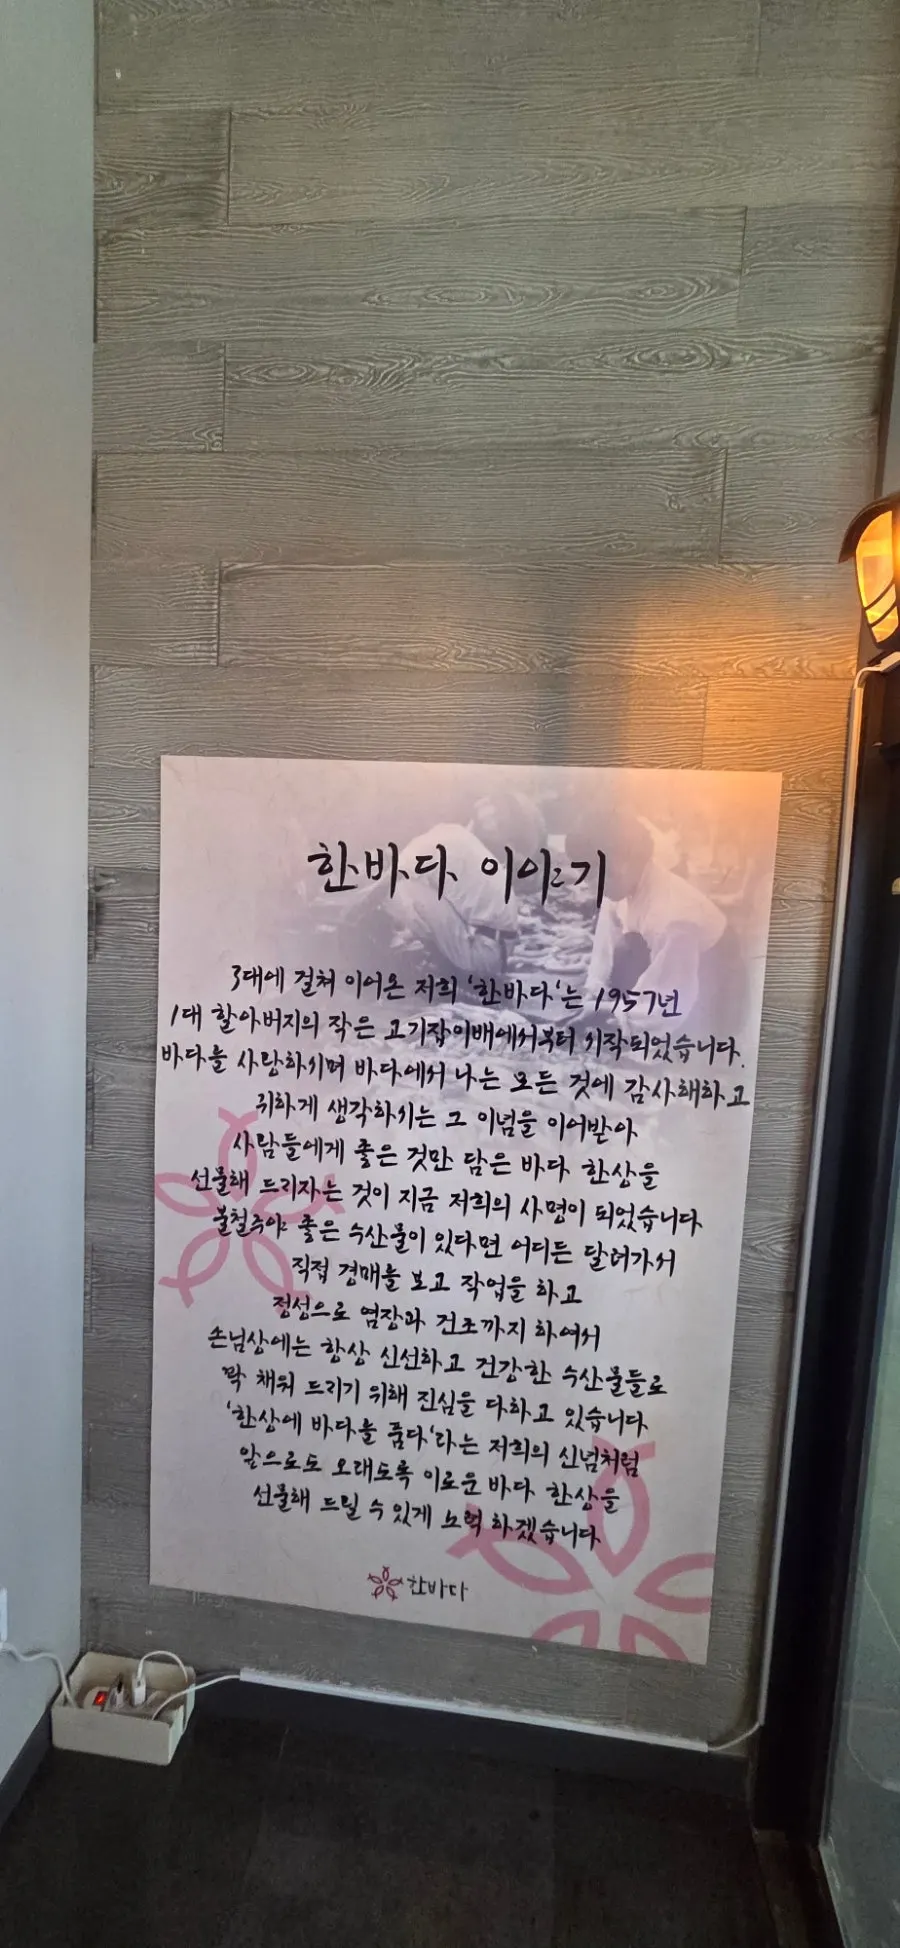 한바다 이야기
3대에 걸쳐 이어온 저희 '한바다'는 1957년
1대 할아버지의 작은 고기잡이배에서부터 시작되었습니다.
바다를 사랑하시며 바다에서 나는 모든 것에 감사해하고
귀하게 생각하시는 그 이념을 이어받아
사람들에게 좋은 것만 담은 바다 한상을
선물해 드리자는 것이 지금 저희의 사명이 되었습니다
불철주야 좋은 수산물이 있다면 어디든 달려가서
직접 경매를 보고 작업을 하고
정성으로 염장과 건조까지 하여서
손님상에는 항상 신선하고 건강한 수산물들로
꽉 채워 드리기 위해 진심을 다하고 있습니다
'한상에 바다를 품다'라는 저희의 신념처럼
앞으로도 오래도록 이로운 바다 한상을
선물해 드릴 수 있게 노력 하겠습니다
한바다